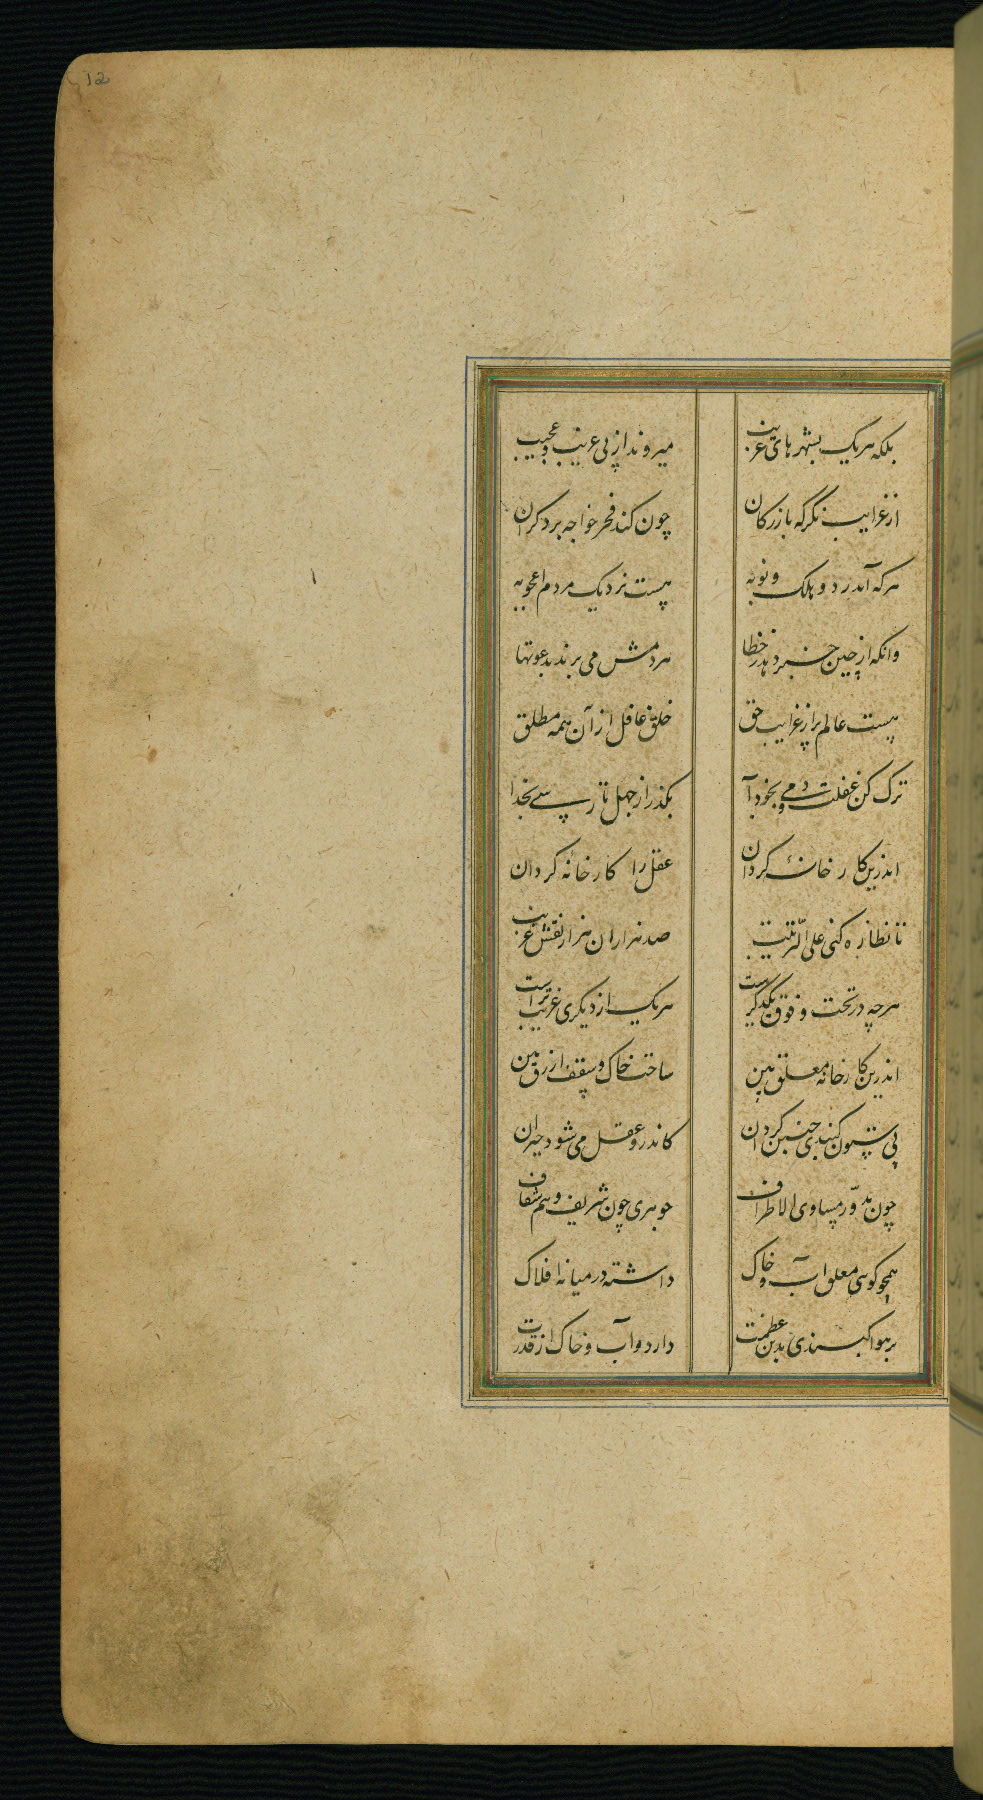 12
بلکه هریک بشهرهای غریب میروند از پی غریب و عجیب
از غرایب نگر که بازرکان چون کند فخر خواجه بر دکران
هرکه آمد ز و نوبه هست نزدیک مردم اعجوبه
وانکه از چین خبر دهد ز خطا هر دمش می برند بدعوتها
هست عالم پر از غرایب حق خلق غافل از آن همه مطلق
ترک کن غفلت و دمی بخود آ بکذر از جهل تا رسی بخدا
اندرین کارخانهٔ کردان عقل را کارخانه کردان
تا نظاره کنی علی الترتیب صد هزاران هزار نقش غریب
هرچه در تحت و فوق یکدیکرست هریک از دیکری غریب تراست
اندرین کارخانه معلق بین ساخت خاک و سقف ازرق بین
بی ستون کنبدی چنین کردان کاندرو عقل می شود حیران
چون مدوّر مساوی الاطراف جوهری چون شریف و هم شفاف
همچو کوی معلق آب و خاک داشته در میانه افلاک
بر هوا کنبدی بدین عظمت دارد و آب و خاک از قدرت